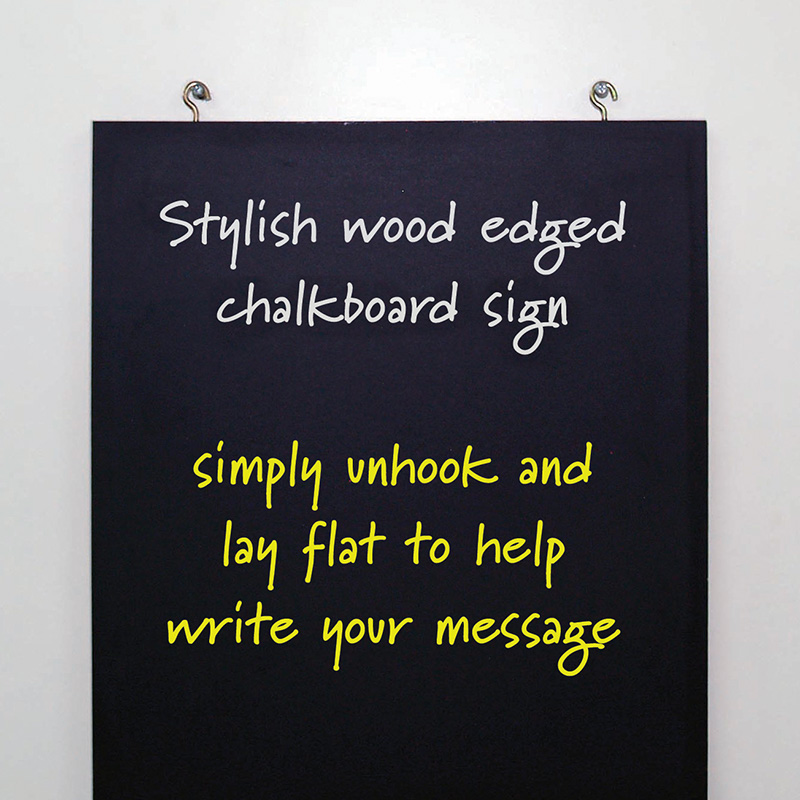 Stylish wood edged
chalkboard sign
simply unhook and
lay flat to help
write your message